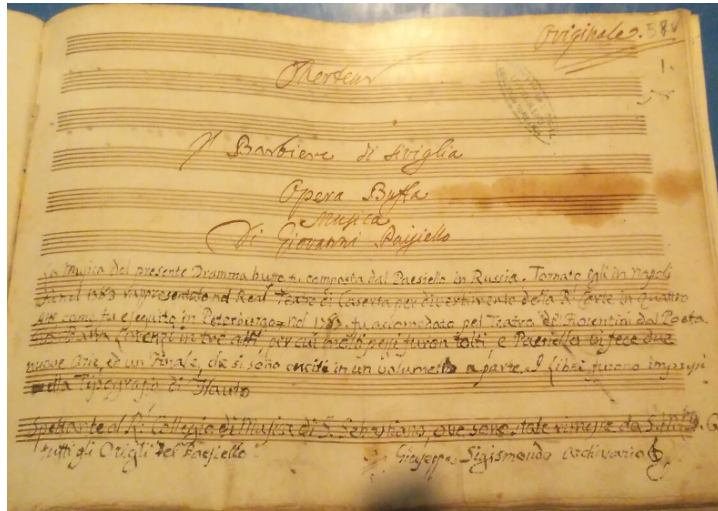 Originale. 588
1.
Ouverteur
Il Barbiere di Siviglia
Opera Buffa
Musica
Di Giovanni Paisiello
La Musica del presente Dramma buffo fu composta dal Paesiello in Russia. Tornato egli in Napoli
rappresentato nel Real Teatro di Caserta per divertimento della Rl. Corte in quattro
Atti come fu eseguito in Peterburgo= nel 1787. fu accomodato pel Teatro de' Fiorentini dal Poeta
Gio. Batta Lorenzi in tre atti, per cui molti pezzi furon tolti, e Paesiello vi fece due
nuove Arie, ed un Finale, che si sono cuciti in un volumetto a parte. I libri furono impressi
nella Tipografia di Flauto
Spettante al Rl. Collegio di Musica di S. Sebastiano, ove sono state rimesse da
tutti gli Origli del Paesiello
Giuseppe Sigismondo Archivario